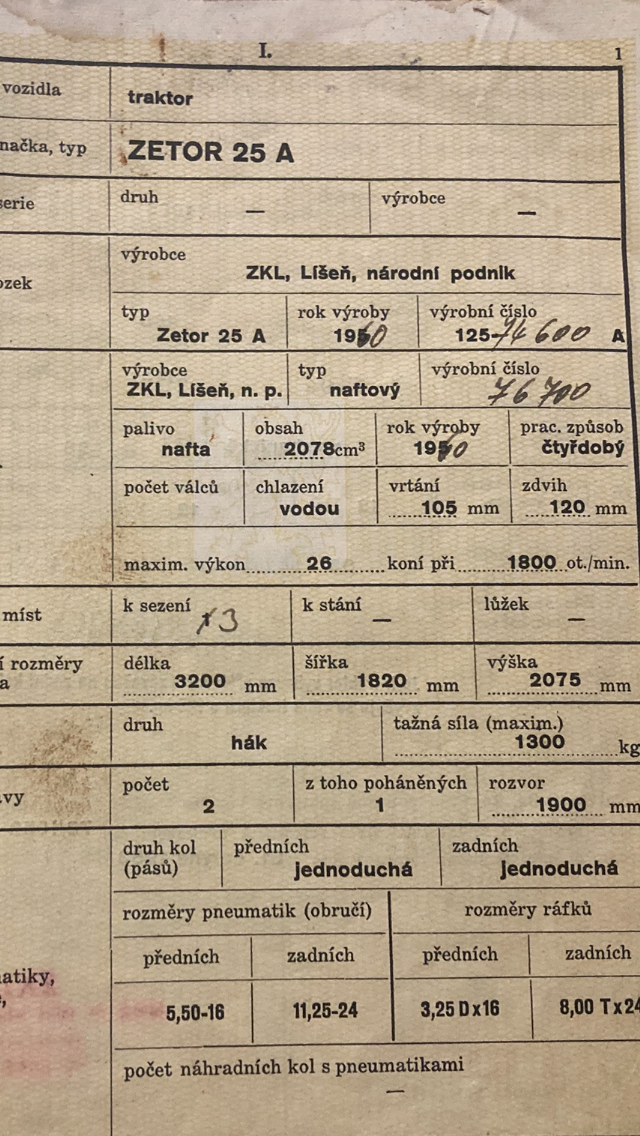 I. 1
vozidla traktor
načka, typ ZETOR 25 A
serie druh — výrobce —
výrobce
ozek ZKL, Líšeň, národní podnik
typ rok výroby výrobní číslo
Zetor 25 A 1960 125-74600 A
výrobce typ výrobní číslo
ZKL, Líšeň, n. p. naftový 76700
palivo obsah rok výroby prac. způsob
nafta 2078cm³ 1960 čtyřdobý
počet válců chlazení vrtání zdvih
vodou 105 mm 120 mm
maxim. výkon 26 koní při 1800 ot./min.
míst k sezení 3 k stání — lůžek —
í rozměry délka šířka výška
a 3200 mm 1820 mm 2075 mm
druh tažná síla (maxim.)
hák 1300 kg
počet z toho poháněných rozvor
vy 2 1 1900 mm
druh kol předních zadních
(pásů) jednoduchá jednoduchá
rozměry pneumatik (obručí) rozměry ráfků
předních zadních předních zadních
atiky,
5,50-16 11,25-24 3,25 D x 16 8,00 T x 24
počet náhradních kol s pneumatikami
—